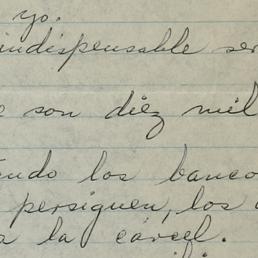 yo.
indispensable ser
son diez mil
ndo los banco
persiguen, los
a la cárcel.